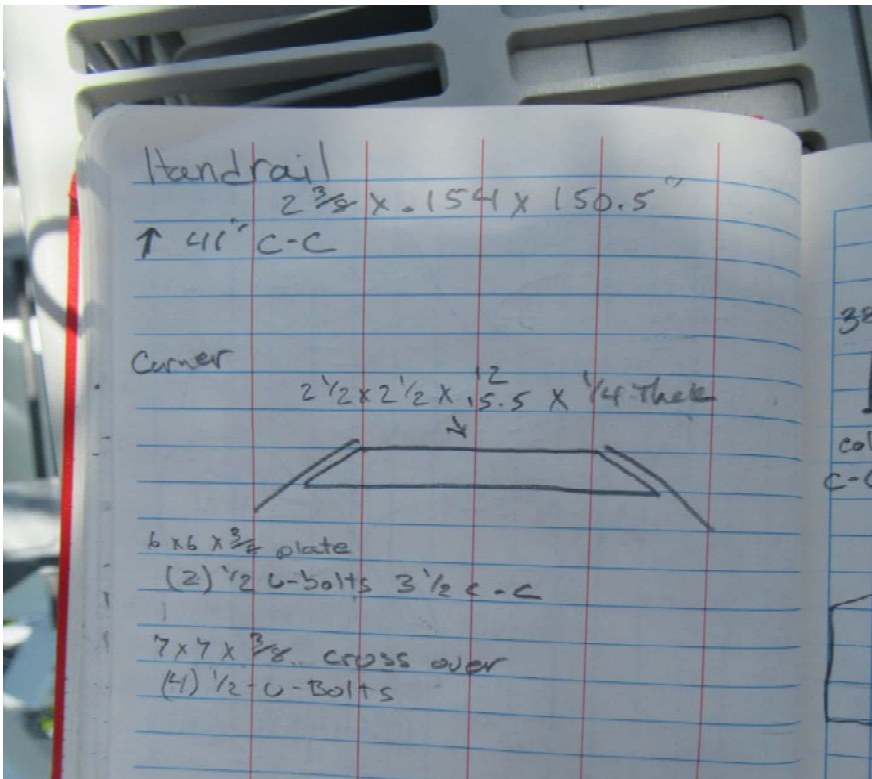 Handrail
2 3/8 x .154 x 150.5"
↑ 41" C-C
Corner
12
2 1/2 x 2 1/2 x 15.5 x 1/4 Thck
6 x 6 x 3/8 plate
(2) 1/2 U-bolts 3 1/2 C-C
7 x 7 x 3/8 cross over
(4) 1/2-U-Bolts
38
col
C-C